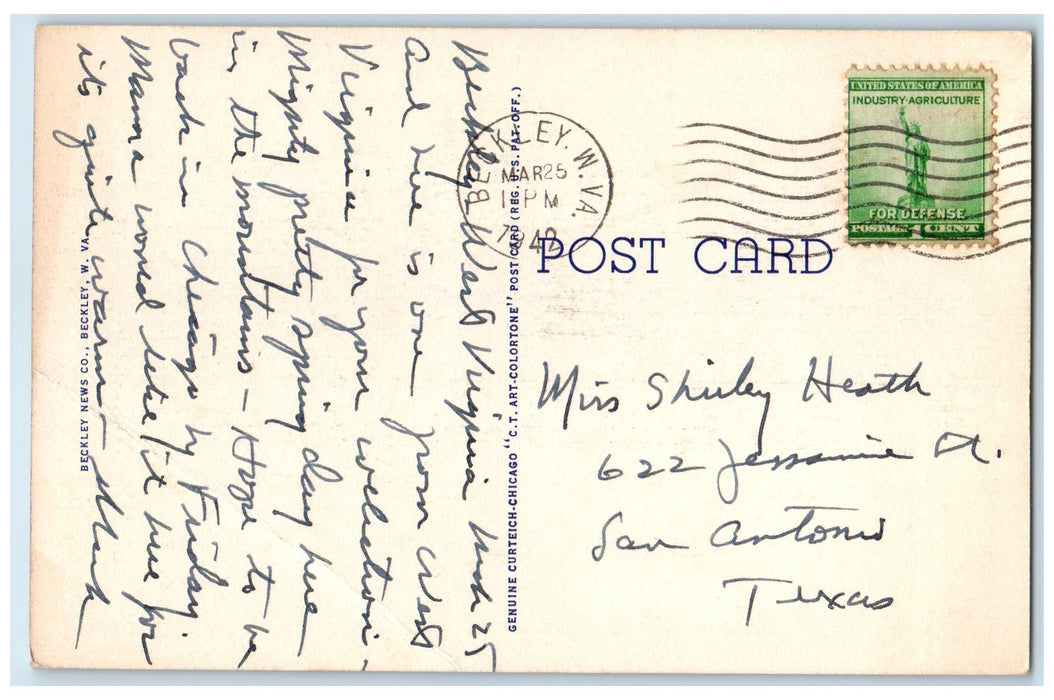 Beckley West Virginia Mch 25
And here is one from West
Virginia for your collection.
Mighty pretty spring day here
in the mountains - Hope to be
back in Chicago by Friday.
Mama would like it here for
its quite warm -
BECKLEY NEWS CO., BECKLEY, W. VA.
GENUINE CURTEICH-CHICAGO "C.T. ART-COLORTONE" POST CARD (REG. U.S. PAT. OFF.)
BECKLEY. W. VA.
MAR 25
1 PM
1942
UNITED STATES OF AMERICA
INDUSTRY·AGRICULTURE
FOR DEFENSE
POSTAGE 1 CENT
POST CARD
Miss Shirley Heath
622 Jessamine St.
San Antonio
Texas